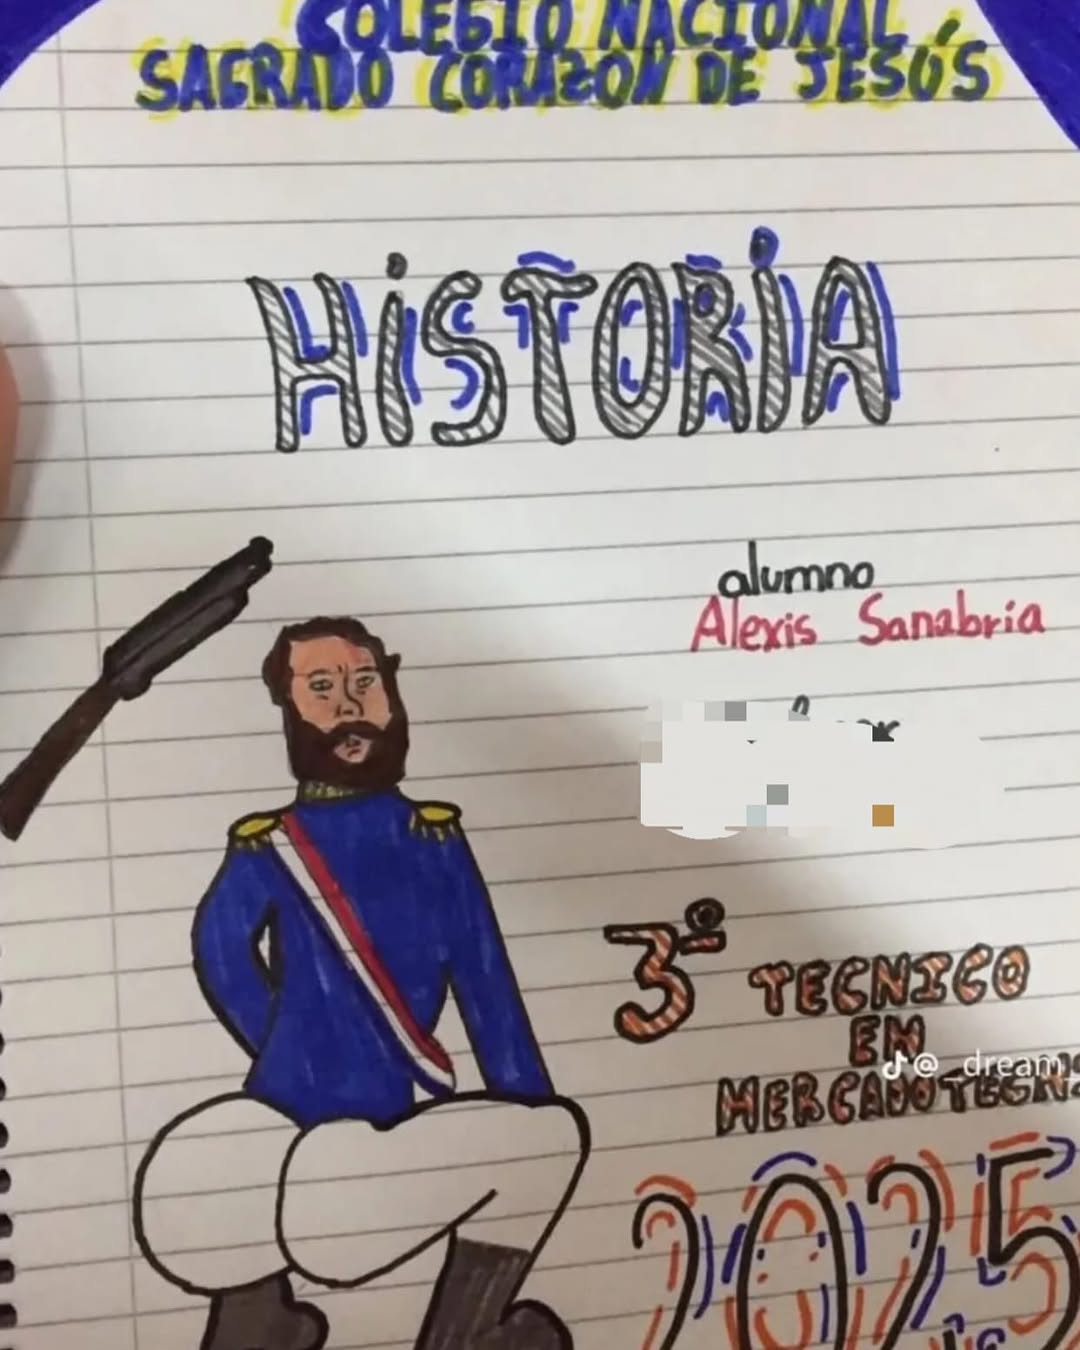 COLEGIO NACIONAL
SAGRADO CORAZON DE JESÚS
HiSTORiA
alumno
Alexis Sanabria
3º TECNICO
EN
@_dream
2025